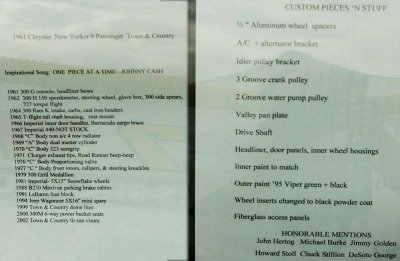 1961 Chrysler New Yorker 9 Passenger Town & Country
Inspirational Song: ONE PIECE AT A TIME—JOHNNY CASH
1961 300 G console, headliner bows
1962 300 H 150 speedometer, steering wheel, glove box, 300 side spears,
727 torque flight
1964 300 Ram K intake, carbs, cast iron headers
1965 T-flight tail shaft housing, rear mount
1966 Imperial inner door handles, Barracuda cargo brace
1967 Imperial 440-NOT STOCK
1968 "C" Body non a/c 4 row radiator
1969 "A" Body dual master cylinder
1970 "C" Body 323 suregrip
1971 Charger exhaust tips, Road Runner beep-beep
1976 "C" Body Proportioning valve
1977 "C" Body front rotors, calipers, & steering knuckles
1979 300 Grill Medallion
1981 Imperial- 5X15" Snowflake wheels
1988 B250 Maxivan parking brake cables
1991 LeBaron fuse block
1994 Jeep Wagoneer 5X16" mini spare
1999 Town & Country dome lites
2000 300M 6-way power bucket seats
2002 Town & Country lit sun visors
CUSTOM PIECES 'N STUFF
Aluminum wheel spacers
A/C + alternator bracket
Idler pulley bracket
3 Groove crank pulley
2 Groove water pump pulley
Valley pan plate
Drive Shaft
Headliner, door panels, inner wheel housings
Inner paint to match
Outer paint '95 Viper green + black
Wheel inserts changed to black powder coat
Fiberglass access panels
HONORABLE MENTIONS
John Hertog Michael Burke Jimmy Golden
Howard Stoll Chuck Stillion DeSoto George